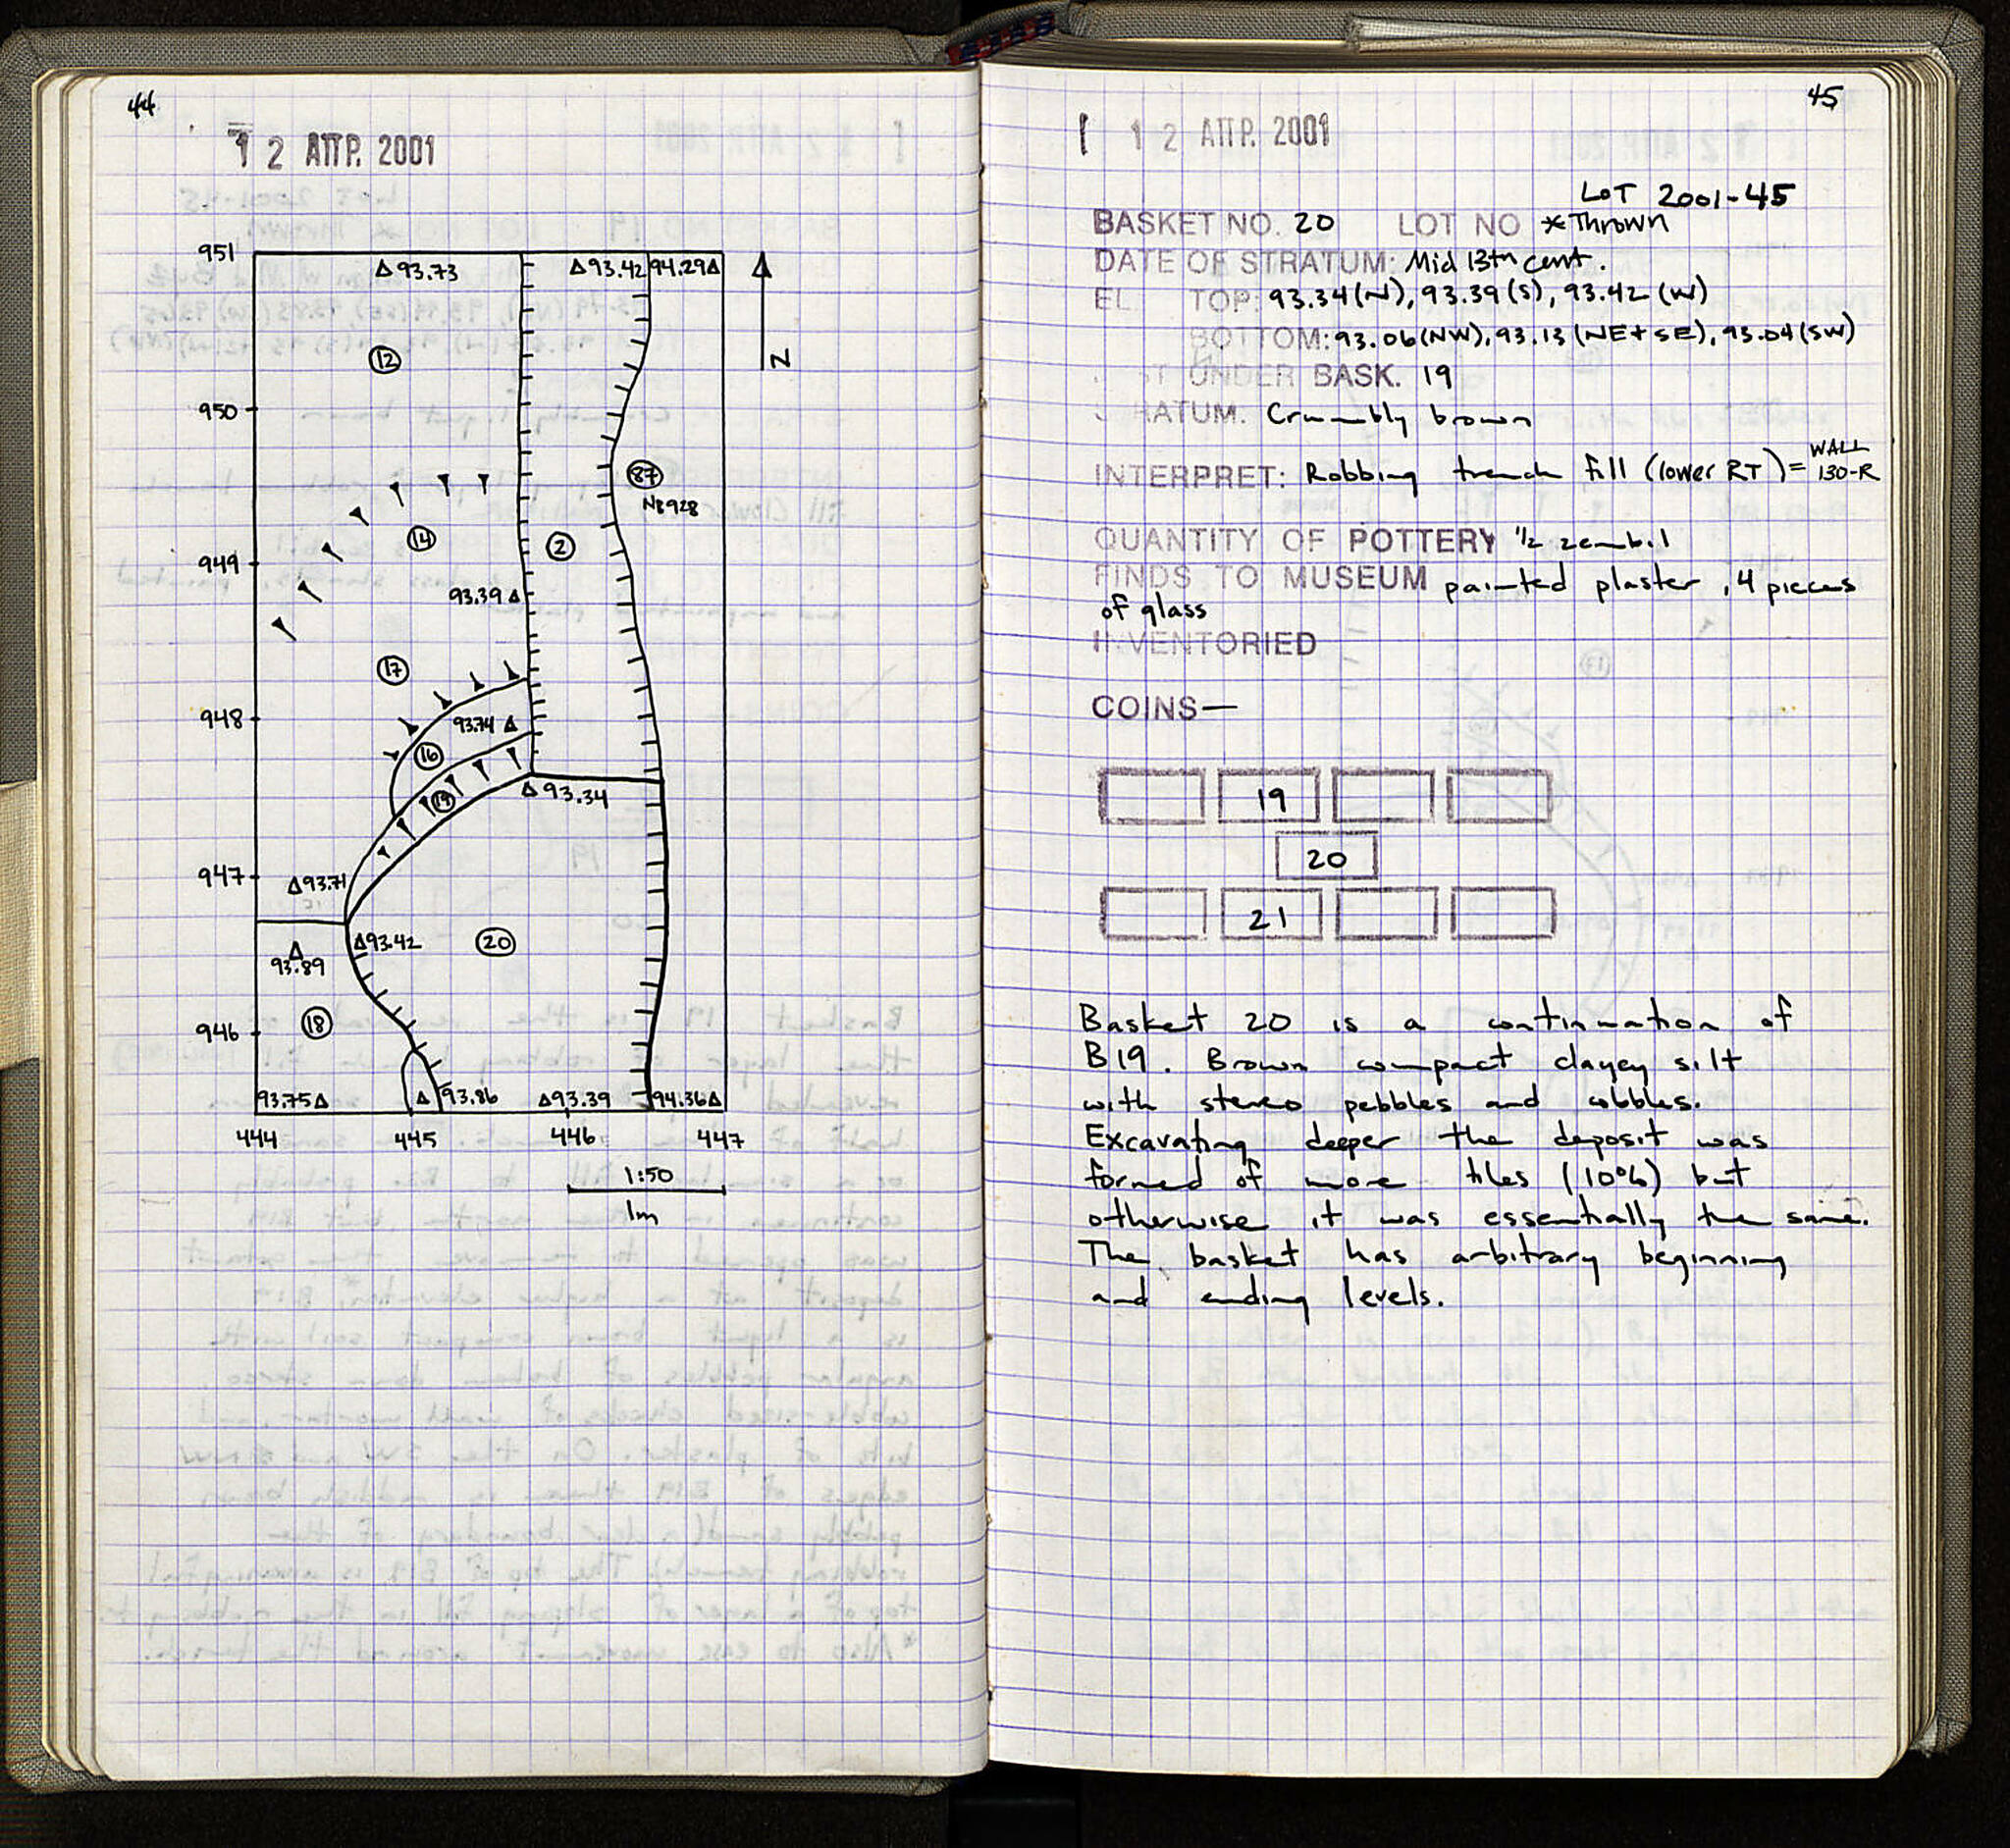 44
12 ΑΠΡ. 2001
951
Δ93.73
Δ93.42
94.29Δ
N
12
950
87
NB928
14
2
949
93.39Δ
17
948
93.74 Δ
16
19
Δ93.34
947
Δ93.71
Δ93.42
20
Δ
93.89
946
18
93.75Δ
Δ
93.86
Δ93.39
94.36Δ
444 445 446 447
1:50
1m
45
12 ΑΠΡ. 2001
LOT 2001-45
BASKET NO. 20 LOT NO *Thrown
DATE OF STRATUM: Mid 13th cent.
EL. TOP: 93.34(N), 93.39(S), 93.42(W)
BOTTOM: 93.06(NW), 93.13(NE+SE), 93.04(SW)
UNDER BASK. 19
STRATUM. Crumbly brown
WALL
INTERPRET: Robbing trench fill (lower RT) = 130-R
QUANTITY OF POTTERY 1/2 zembil
FINDS TO MUSEUM painted plaster, 4 pieces
of glass
INVENTORIED
COINS—
19
20
21
Basket 20 is a continuation of
B19. Brown compact clayey silt
with stereo pebbles and cobbles.
Excavating deeper the deposit was
formed of more tiles (10%) but
otherwise it was essentially the same.
The basket has arbitrary beginning
and ending levels.